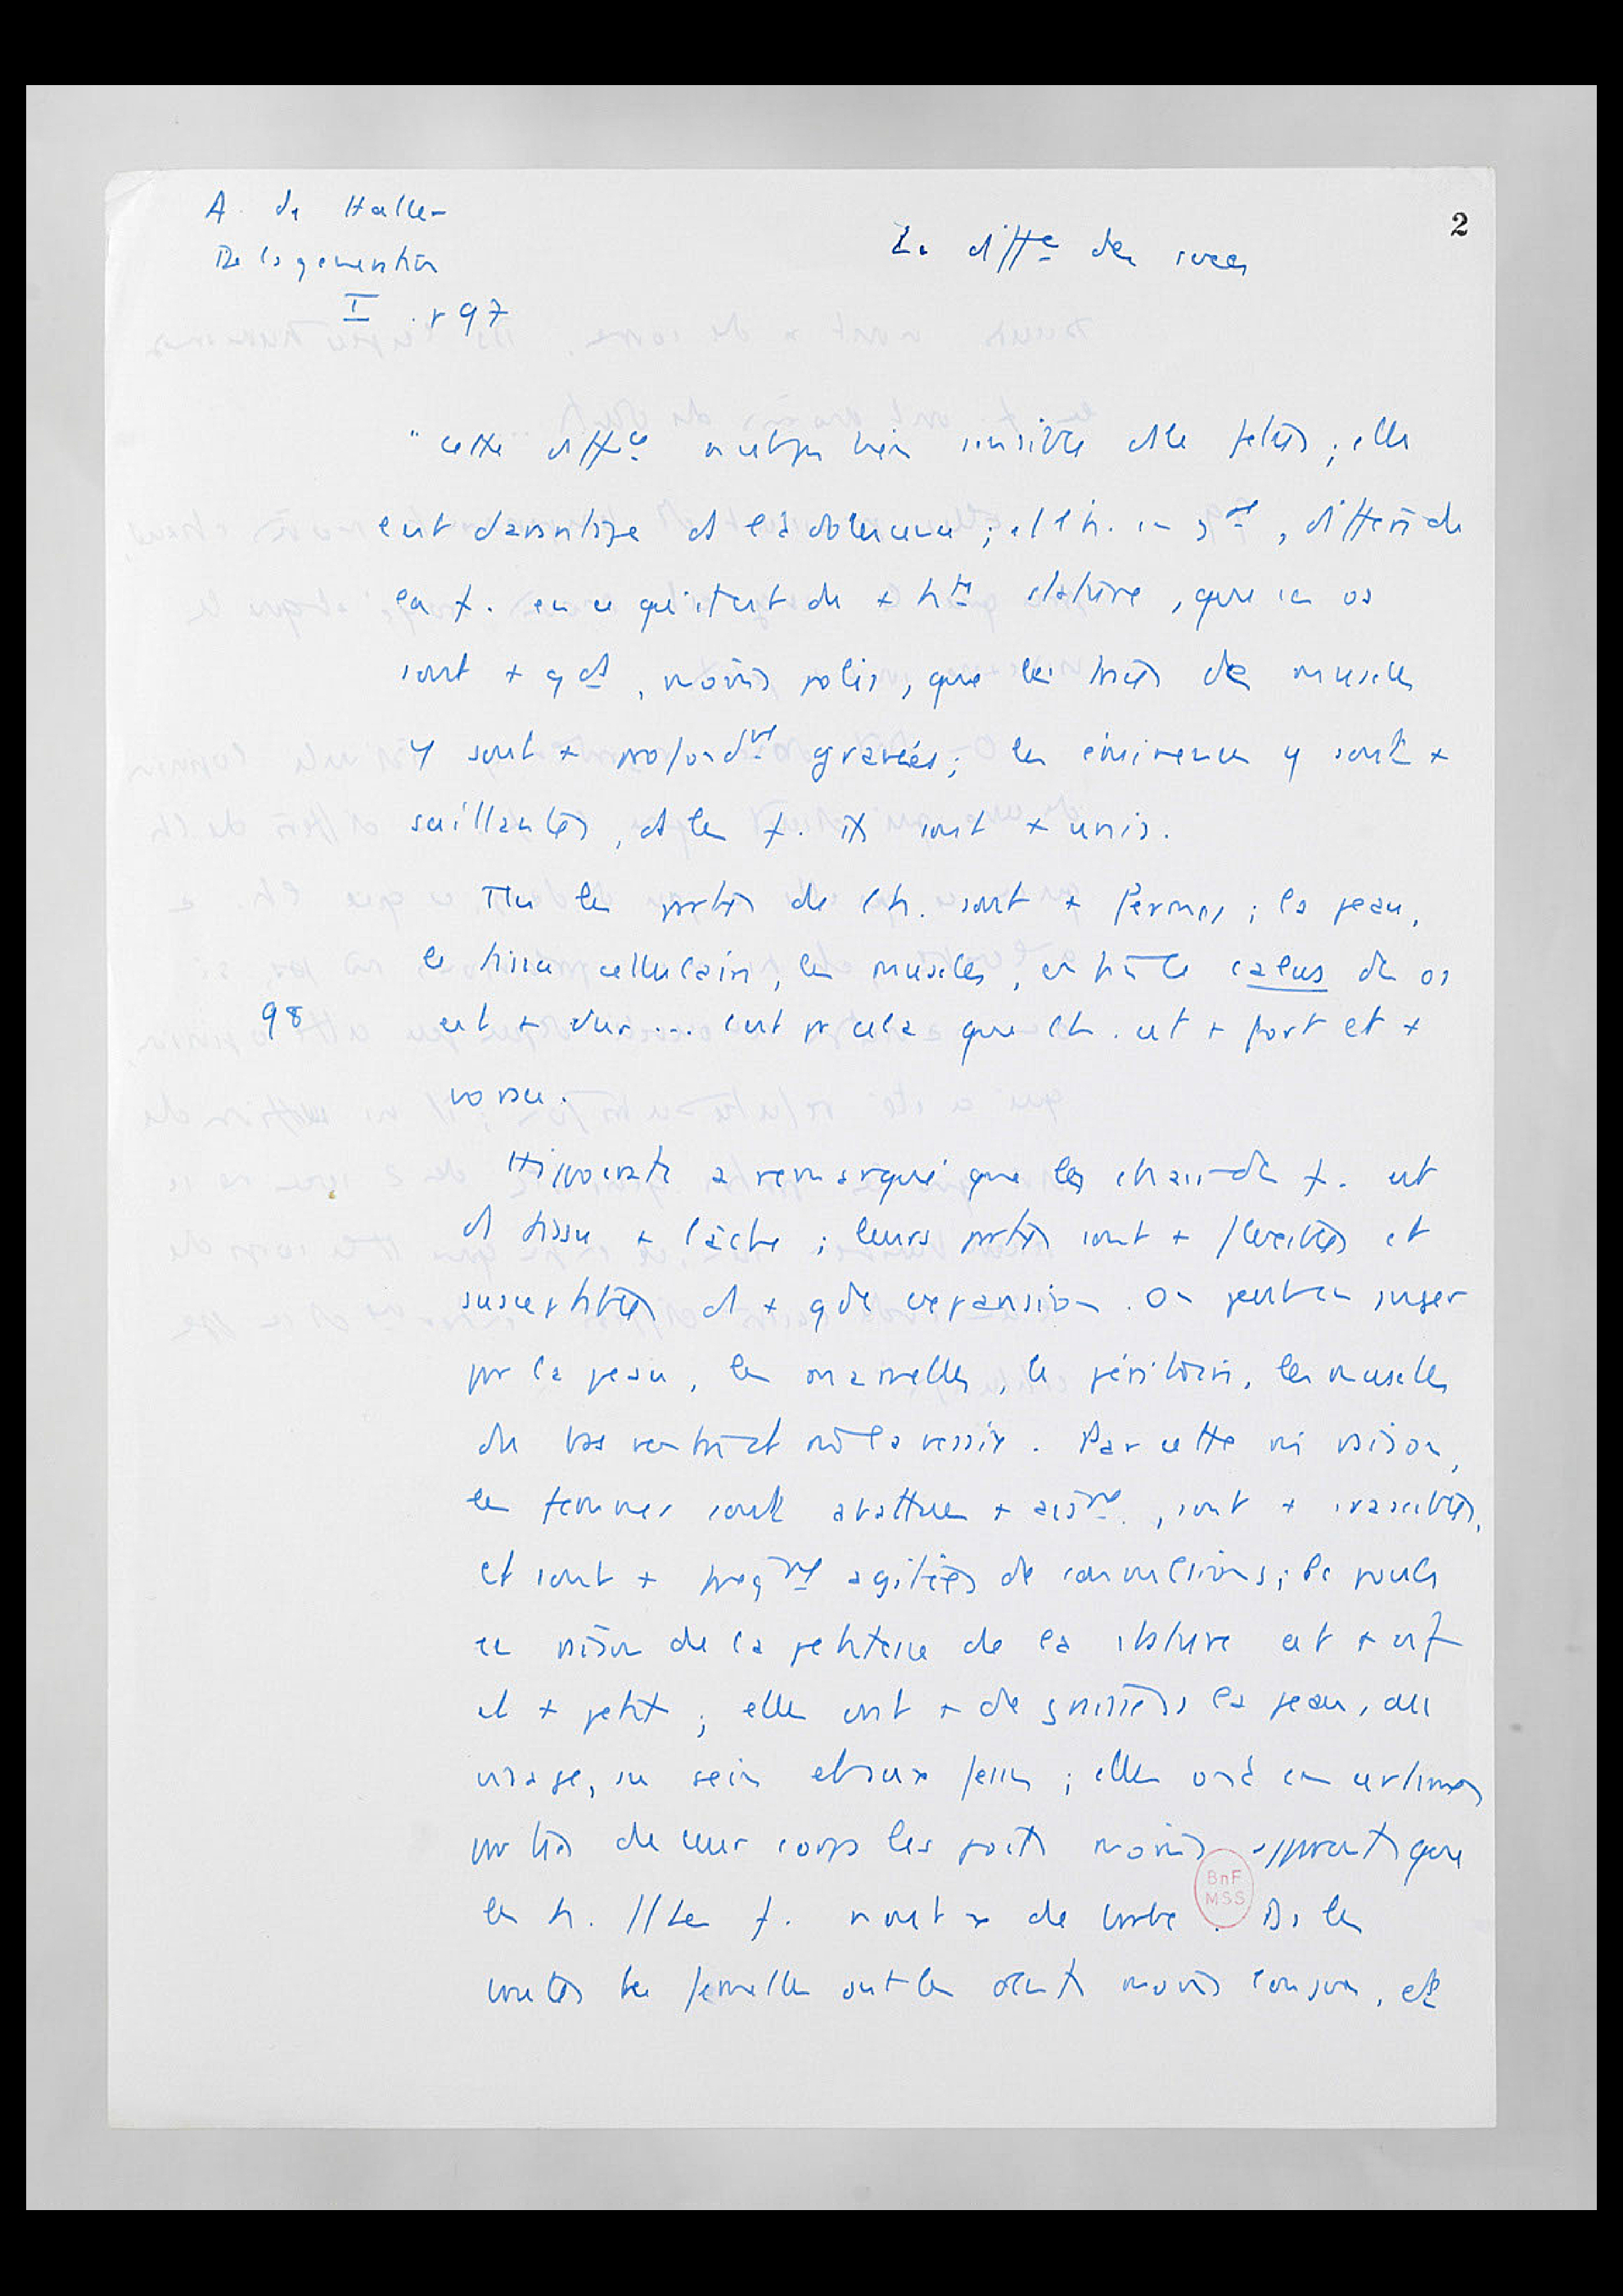 A. de Haller
De la génération
I . p 97
2
La diffce des sexes
" cette diffce n'est pas bien sensible ds le fetus ; elle
l'est davantage ds l'adolescence ; et l'h. en gal, diffère de
la f. en ce qu'il est de + hte stature, que les os
sont + gds, moins polis, que les traces des muscles
y sont + profondmt gravées ; les éminences y sont +
saillantes, ds les f. ils sont + unis.
Ttes les parties de l'h. sont + fermes ; la peau,
le tissu cellulaire, les muscles, entre le calus des os
98 est + dur ... c'est pr cela que l'h. est + fort et +
Hippocrate a remarqué que la chair des f. est
d'1 tissu + lâche ; leurs parties sont + flexibles et
susceptibles d'1 + gde expansion. On peut en juger
par la peau, les mamelles, le péritoine, les muscles
du bas ventre et la vessie. Par cette raison,
les femmes sont abattues + aismt, sont + irascibles,
et sont + freqmt agitées de convulsions ; le pouls
en raison de la petitesse de la stature est + vif
et + petit ; elles ont + de graisse ss la peau, au
visage, au sein et aux fesses ; elles ont en certaines
parties de leur corps les poils moins apparents que
les h. // Les f. n'ont x de barbe. Ds les
brutes les femelles ont les dents moins longues, et
BnF
MSS